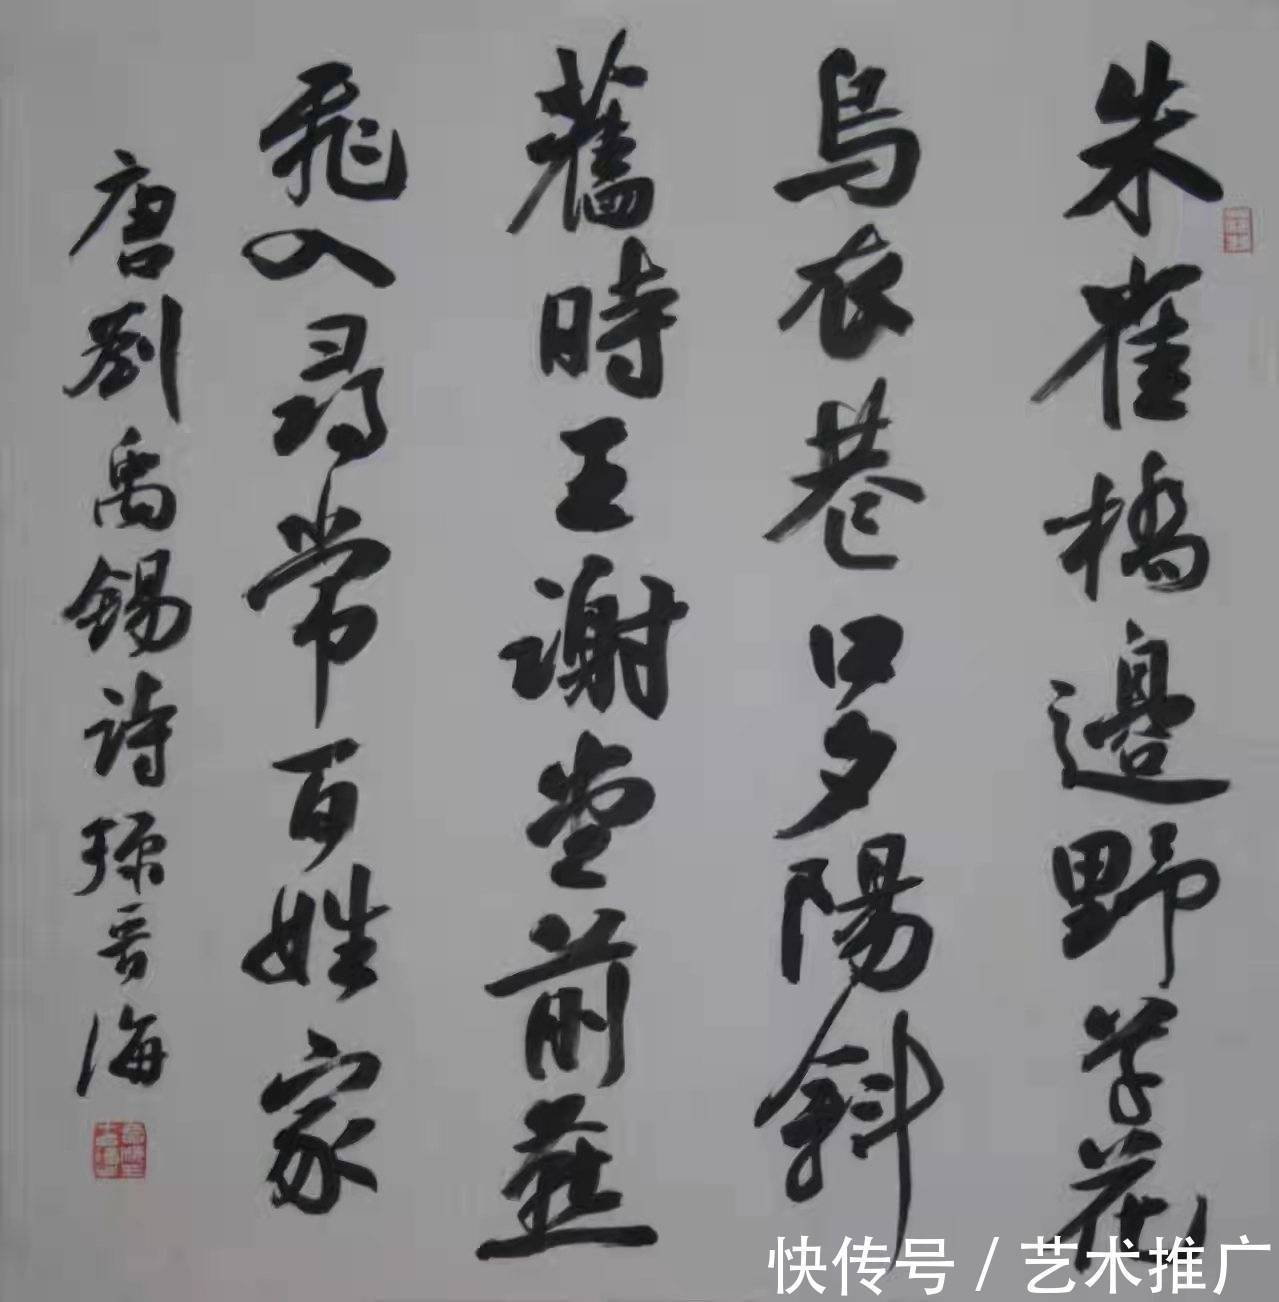 朱雀橋邊野草花
烏衣巷口夕陽斜
舊時王謝堂前燕
飛入尋常百姓家
唐劉禹錫詩 海
快传号 / 艺术推广